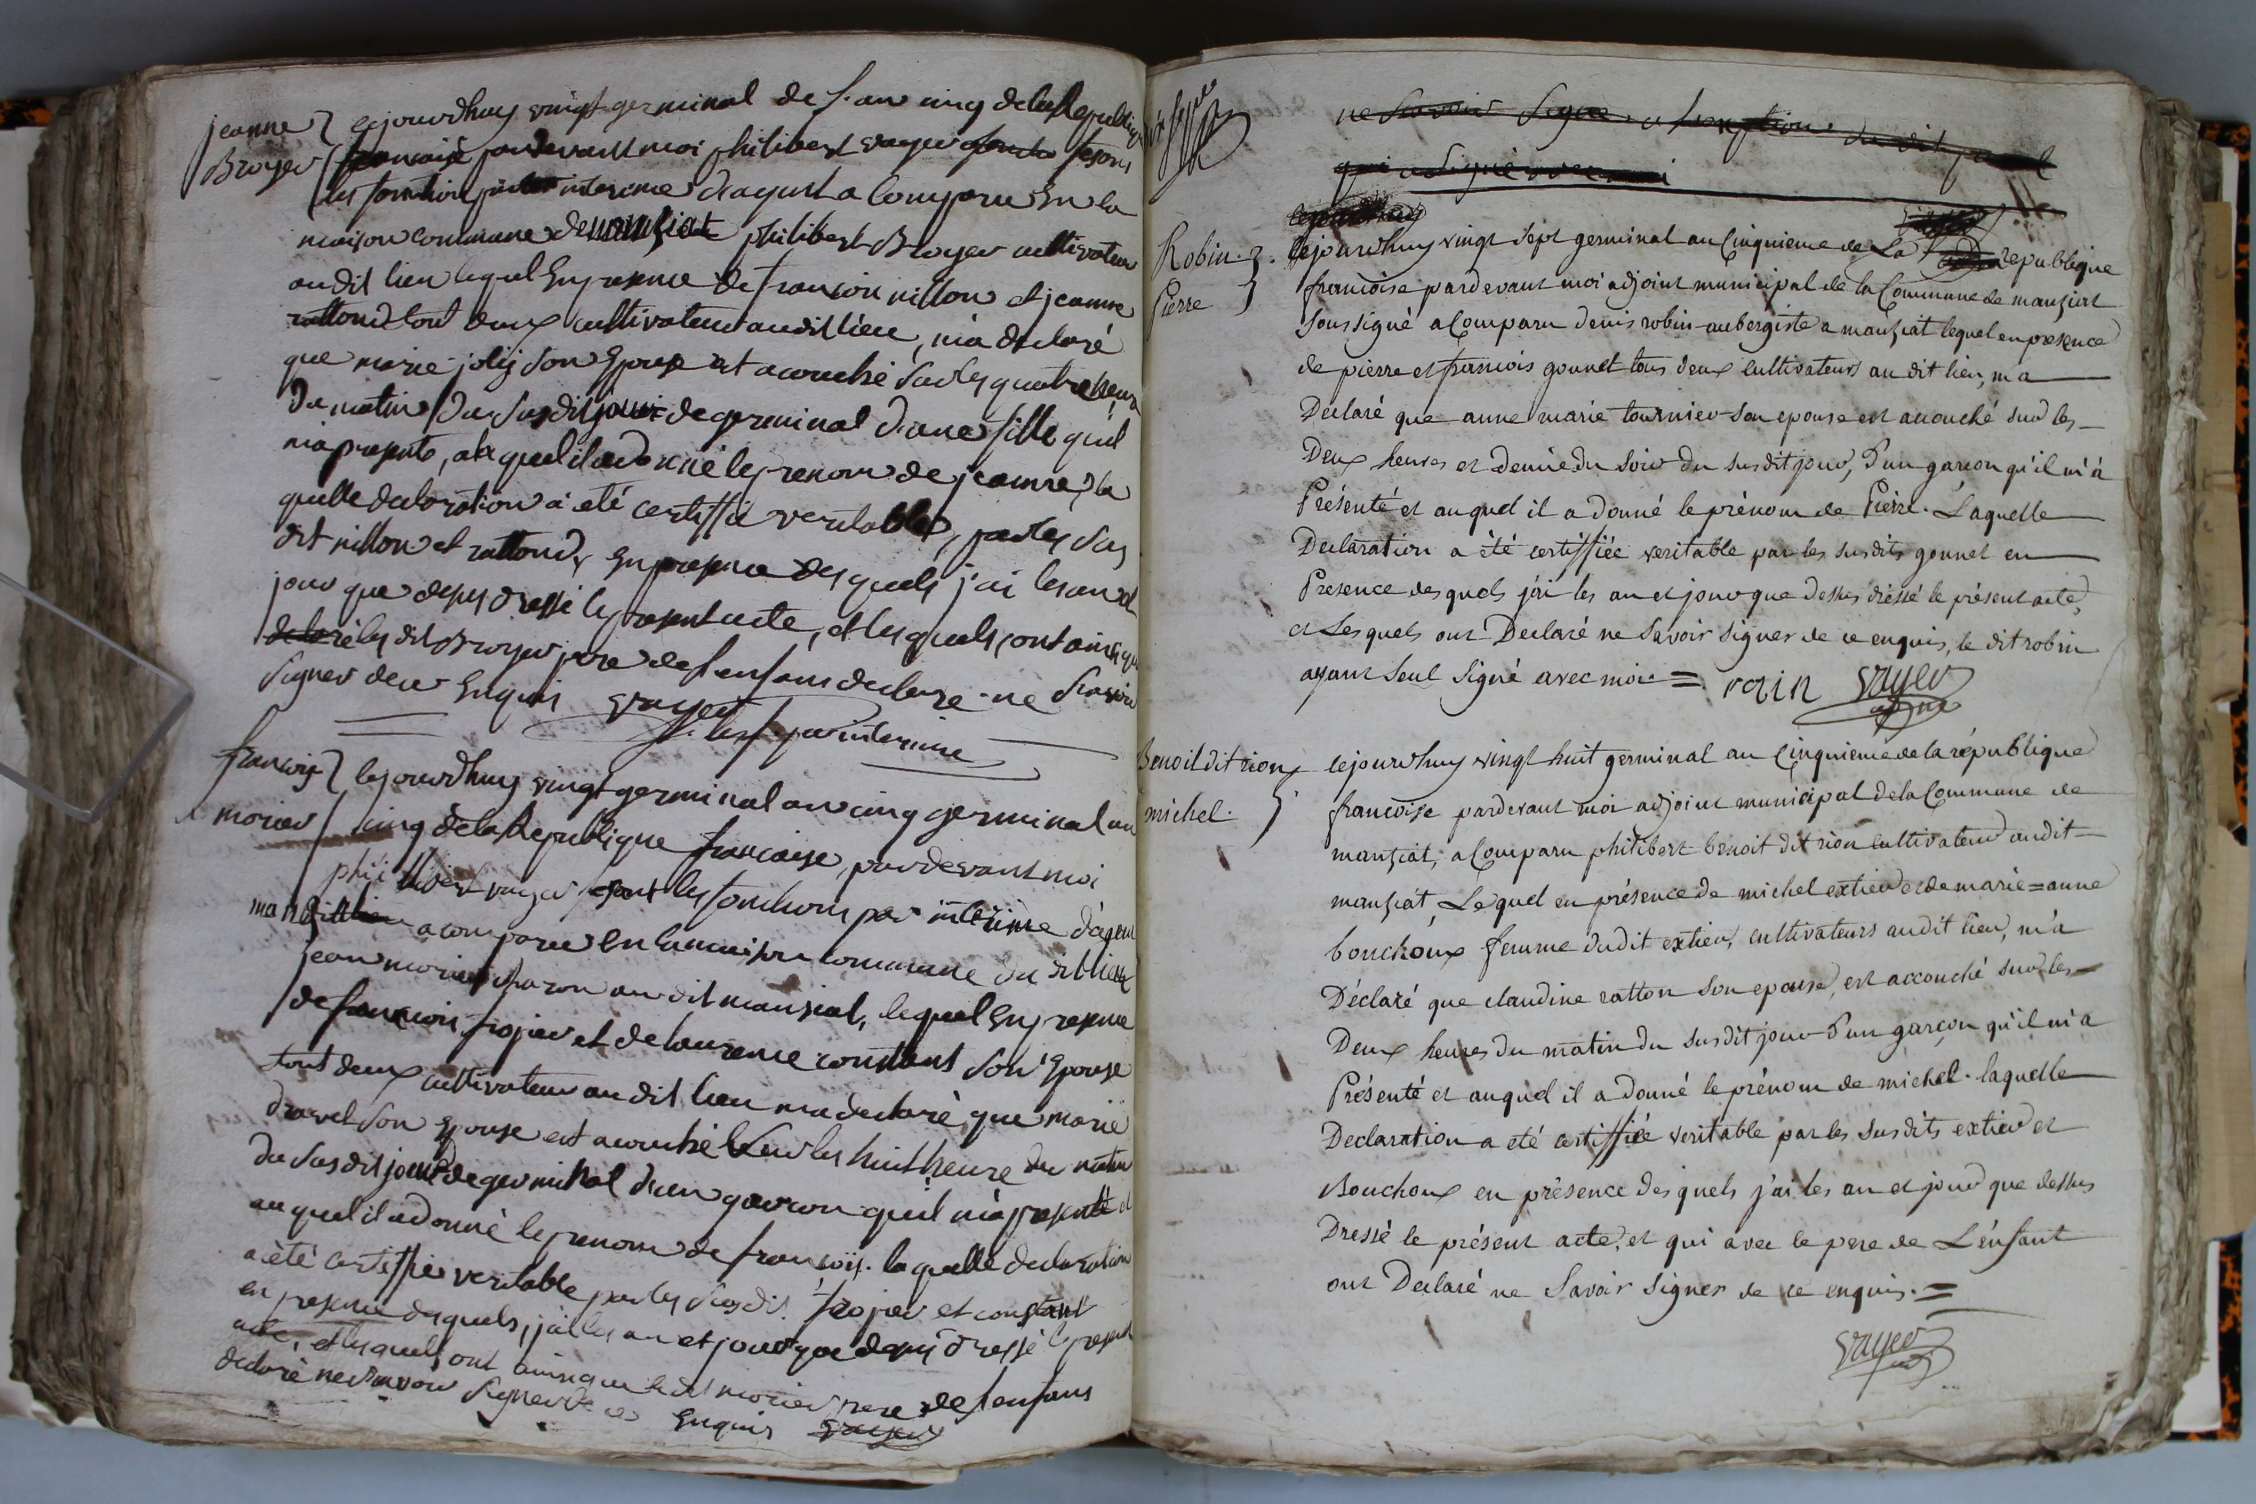 jeanne
Broyer
cejourdhuy vingt germinal de l'an cinq de la Republique
francaise pardevant moi philibert vayer fesans
les fonction par interime d'agent a Comparu En la
maison commune de manziat philibert Broyer cultivateur
au dit lieu lequel En presence de francois nillon et jeanne
rattond tout deux cultivateur audit lieu, m'a declaré
que marie joly son Epouse est acouché sur les quatre heure
du matin du susdit jour de germinal d'une fille qu'il
m'a presente, a la quel il a donné le prenom de jeanne, la
quelle declaration a été certiffié veritable, par les sus
dit nillon et rattond, En presence des quels j'ai les an et
jour que desus dressé le present acte, et les quels ont ainsi que
declaré les dit Broyer pere de l'enfans declare ne scavoir
signer de ce Enquis vayer
par interime
francois
morier
cejourdhuy vingt germinal an cinq germinal an
cinq de la Republique francaise, pardevant moi
philibert vayer fesant les fonctions par interime d'agent
manziat a comparu en la maison commune du dit lieu
jean morier charon au dit manziat, lequel En presence
de francois frojer et de laurence constant son Epouse
tout deux cultivateur au dit lieu m'a declaré, que marie
dravet son Epouse est acouché sur les huit heure du matin
du susdit jour de germinal d'un garcon qu'il m'a presenté et
au quel il a donné le prenom de francois. la quelle declaration
a été certiffié veritable par les susdit frojer et constant
en presence desquels, j'ai les an et jour que desus dressé le present
acte, et les quels ont ainsi que le dit morier pere de l'enfans
declaré ne scavoir signer de ce Enquis vayer
ne scavoir signer a l'exception du dit
qui a signé avec moi
Robin
Pierre
cejourdhuy vingt sept germinal an Cinquieme de La republique
francoise pardevant moi adjoint municipal de la Commune de manziat
soussigné a Comparu denis robin aubergiste a manziat lequel en presence
de pierre et francois gonnet tous deux cultivateurs au dit lieu, m'a
Declaré que anne marie tournier son epouse est accouché sur les
Deux heures et demie du soir du susdit jour, d'un garcon qu'il m'a
Présenté et auquel il a donné le prénom de Pierre. Laquelle
Declaration a été certiffiée veritable par les susdits gonnet en
Presence desquels j'ai les an et jour que dessus dressé le présent acte,
et Lesquels ont Declaré ne Savoir signer de ce enquis, le dit robin
ayant seul signé avec moi = roin vayer
Benoit dit rion
michel
cejourdhuy vingt huit germinal an Cinquieme de la république
francoise pardevant moi adjoint municipal de la Commune de
manziat, a Comparu philibert benoit dit rion cultivateur audit
manziat, Lequel en présence de michel extier et de marie=anne
bouchoux femme dudit extier, cultivateurs audit lieu, m'a
Déclaré que claudine ratton son epouse, est accouché sur les
Deux heures du matin du susdit jour d'un garçon qu'il m'a
Présenté et auquel il a donné le prénom de michel. laquelle
Declaration a eté certiffiée veritable par les susdits extier et
Bouchoux en présence desquels j'ai les an et jour que dessus
Dressé le présent acte, et qui avec le pere de L'énfant
ont Declaré ne Savoir signer de ce enquis. =
vayer